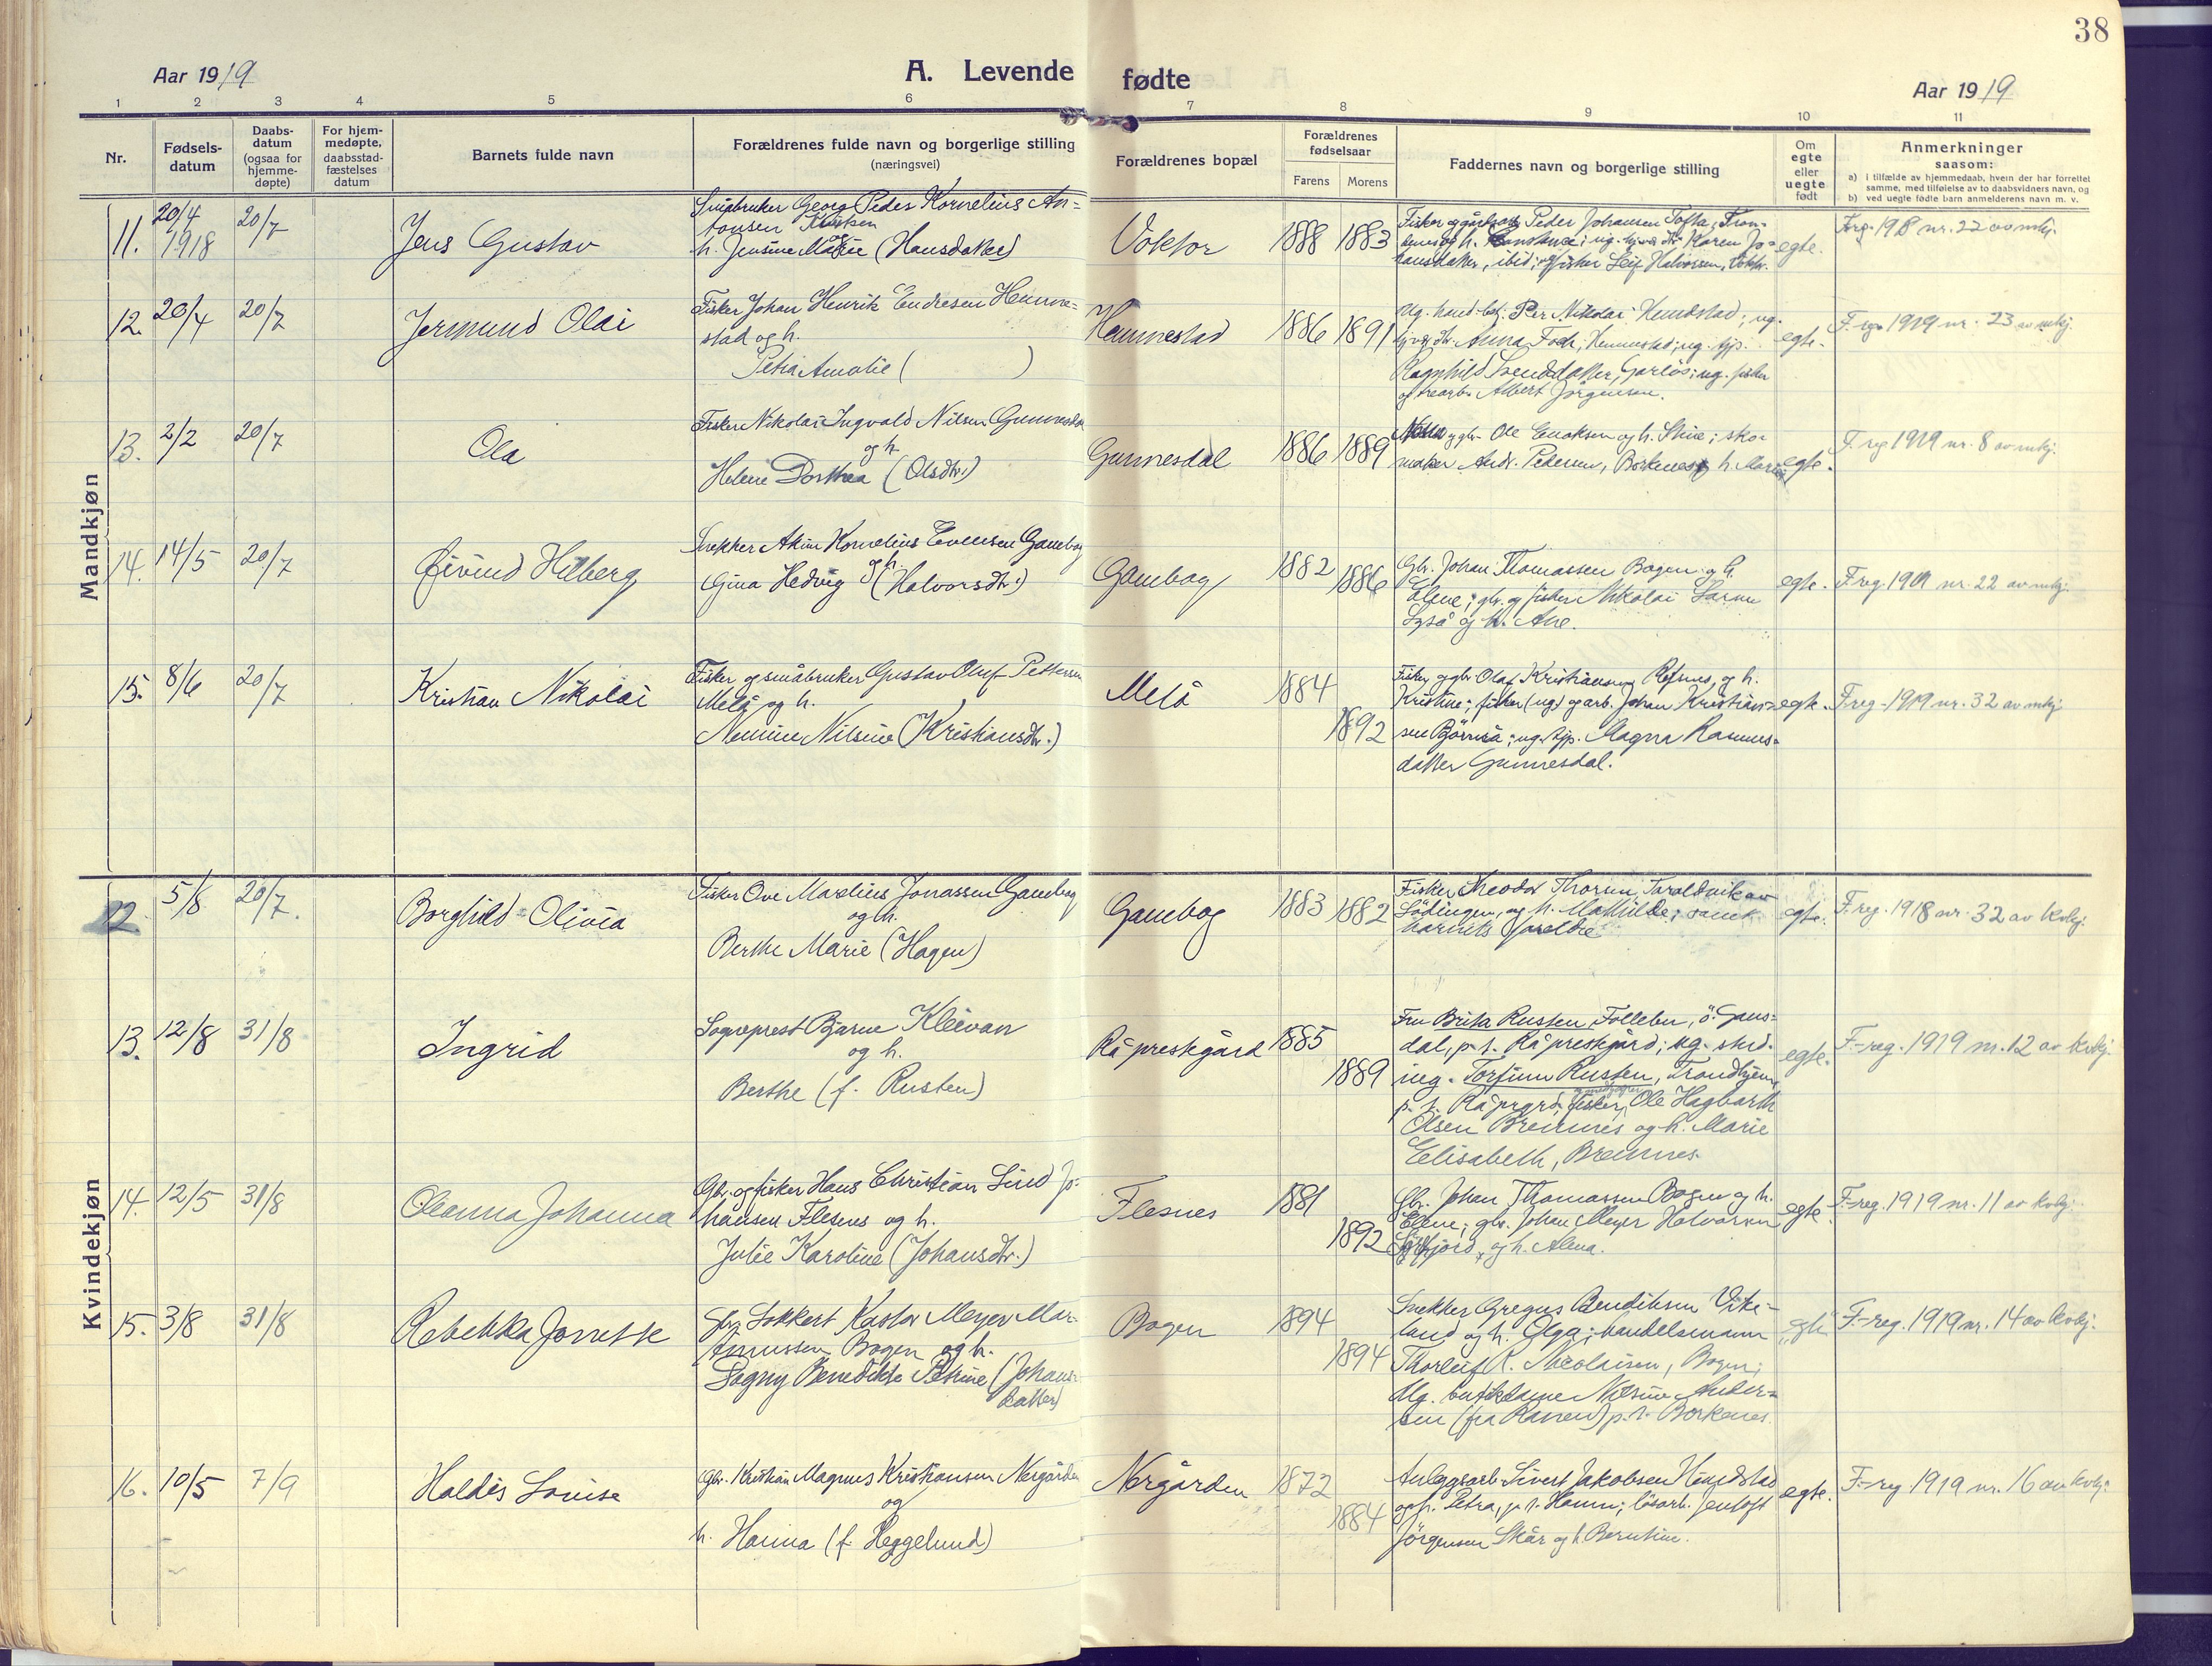 38
Aar 1919
A. Levende fødte
Aar 1919
1 2 3 4 5 6 7 8 9 10 11
Nr.
Fødsels-
datum
Daabs-
datum
(ogsaa for
hjemme-
døpte)
For hjem-
medøpte,
daabsstad-
fæstelses
datum
Barnets fulde navn
Forældrenes fulde navn og borgerlige stilling
(næringsvei)
Forældrenes bopæl
Forældrenes
fødselsaar
Farens Morens
Faddernes navn og borgerlige stilling
Om
egte
eller
uegte
født
Anmerkninger
saasom:
a) i tilfælde av hjemmedaab, hvem der har forrettet
samme, med tilføielse av to daabsvidners navn, og
b) ved uegte fødte barn anmelderens navn m. v.
Mandkjøn
11. 20/4 1918 20/7
Jens Gustav
Småbruker Georg Peder Kornelius An-
tonsen
h. Jensine (Hansdatter)
Voktor
1888 1883
Peder Johansen Tofta,
h. Konstance; ug. Karen Jo-
hansdatter, ibid; fisker Leif Halvorsen,
egte.
F.reg. 1918 nr. 22 av mkj.
12. 20/4 20/7
Jermund Olai
Fisker Johan Henrik Endresen Hemme-
stad og h.
Petra Amalie ( )
Hemmestad
1886 1891
Ug. Per Nikolai Hemdstad; ug.
Anna Hemmestad; ug. tjp.
Ragnhild ug. fisker
Albert Jørgensen.
egte.
F.reg. 1919 nr. 23 av mkj.
13. 2/2 20/7
Ola
Fisker Nikolai Ingvald Nilsen Gunnesdal
og h.
Helene Dorthea (Olsdtr.)
Gunnesdal
1886 1889
gbr. Ole Enoksen og h. Stine; sko-
maker Andr. Pedersen, Borkenes og h. Marie
egte.
F.reg. 1919 nr. 8 av mkj.
14. 14/5 20/7
Øivind Hilberg
Snekker Akim Kornelius Evensen Gausbog
og h.
Gina Hedvig (Halvorsdtr.)
Gausbog
1882 1886
Gbr. Johan Thomassen Bogen og h.
Eline; gbr. og fisker Nikolai
og h. Ane.
egte.
F.reg. 1919 nr. 22 av mkj.
15. 8/6 20/7
Kristian Nikolai
Fisker og småbruker Gustav Oluf Pettersen
Melå og h.
Nilsine (Kristiansdtr.)
Melå
1884
1892
Fisker og gbr. Olaf Kristiansen Refsnes og h.
Kristine; fisker (ug) og arb. Johan Kristian-
sen ug. tjp. Magna Rasmus-
datter Gunnesdal.
egte.
F.reg. 1919 nr. 32 av mkj.
Kvindekjøn
12. 5/8 20/7.
Borghild Olivia
Fisker Ove Marelius Jonassen Gausbog
og h.
Berthe Marie (Hagen)
Gausbog
1883 1882
Fisker Theodor Thorsen, Taraldsvik av
Lødingen, og h. Mathilde; samt
barnets foreldre
egte.
F.reg. 1918 nr. 32 av kvkj.
13. 12/8 31/8
Ingrid
Sogneprest Bjarne Kleivan
og h.
Berthe (f. Rusten)
Kå prestegård
1885
1889
Fru Brita Rusten, Follebu, ö. Gaus-
dal, p. t. Kå prestegård; ug. stud.
ing. Torfinn Rusten, Trondhjem,
p. t. Kå prgrd; fisker, Ole Hagbarth
Olsen Bremnes og h. Marie
Elisabeth, Bremnes.
egte.
F.-reg. 1919 nr. 12 av kvkj.
14. 12/5 31/8
Oleanna Johanna
Gbr. og fisker Hans Christian Lind Jo-
hansen Flesnes og h.
Julie Karoline (Johansdtr.)
Flesnes
1881
1892
Gbr. Johan Thomassen Bogen og h.
Eline; gbr. Johan Meyer Halvorsen
og h. Alma.
egte.
F.-reg. 1919 nr. 11 av kvkj.
15. 3/8 31/8
Rebekka Jonette
Lokkert Kastor Meyer Mar-
Bogen og h.
Dagny Benedikte Petrine (Johans-
datter)
Bogen
1894
1894
Snekker Gregus Bendiksen Vike-
land og h. Olga; handelsmann
Thorleif R. Nicolaisen, Bogen;
Ug. butikdame Nilsine Ander-
sen (fra Ranen) p. t. Borkenes.
egte
F.-reg. 1919 nr. 14 av kvkj.
16. 10/5 7/9
Haldis Lovise
Gbr. Kristian Magnus Kristiansen Nergården
og
h. Hanna (f. Heggelund)
Nergården
1872
1884
Anleggsarb. Sivert Jakobsen Hemdstad
og h. Petra, p. t. Hamn; lösarb. Jentoft
Jörgensen Skår og h. Berntine.
egte.
F.-reg. 1919 nr. 16 av kvkj.